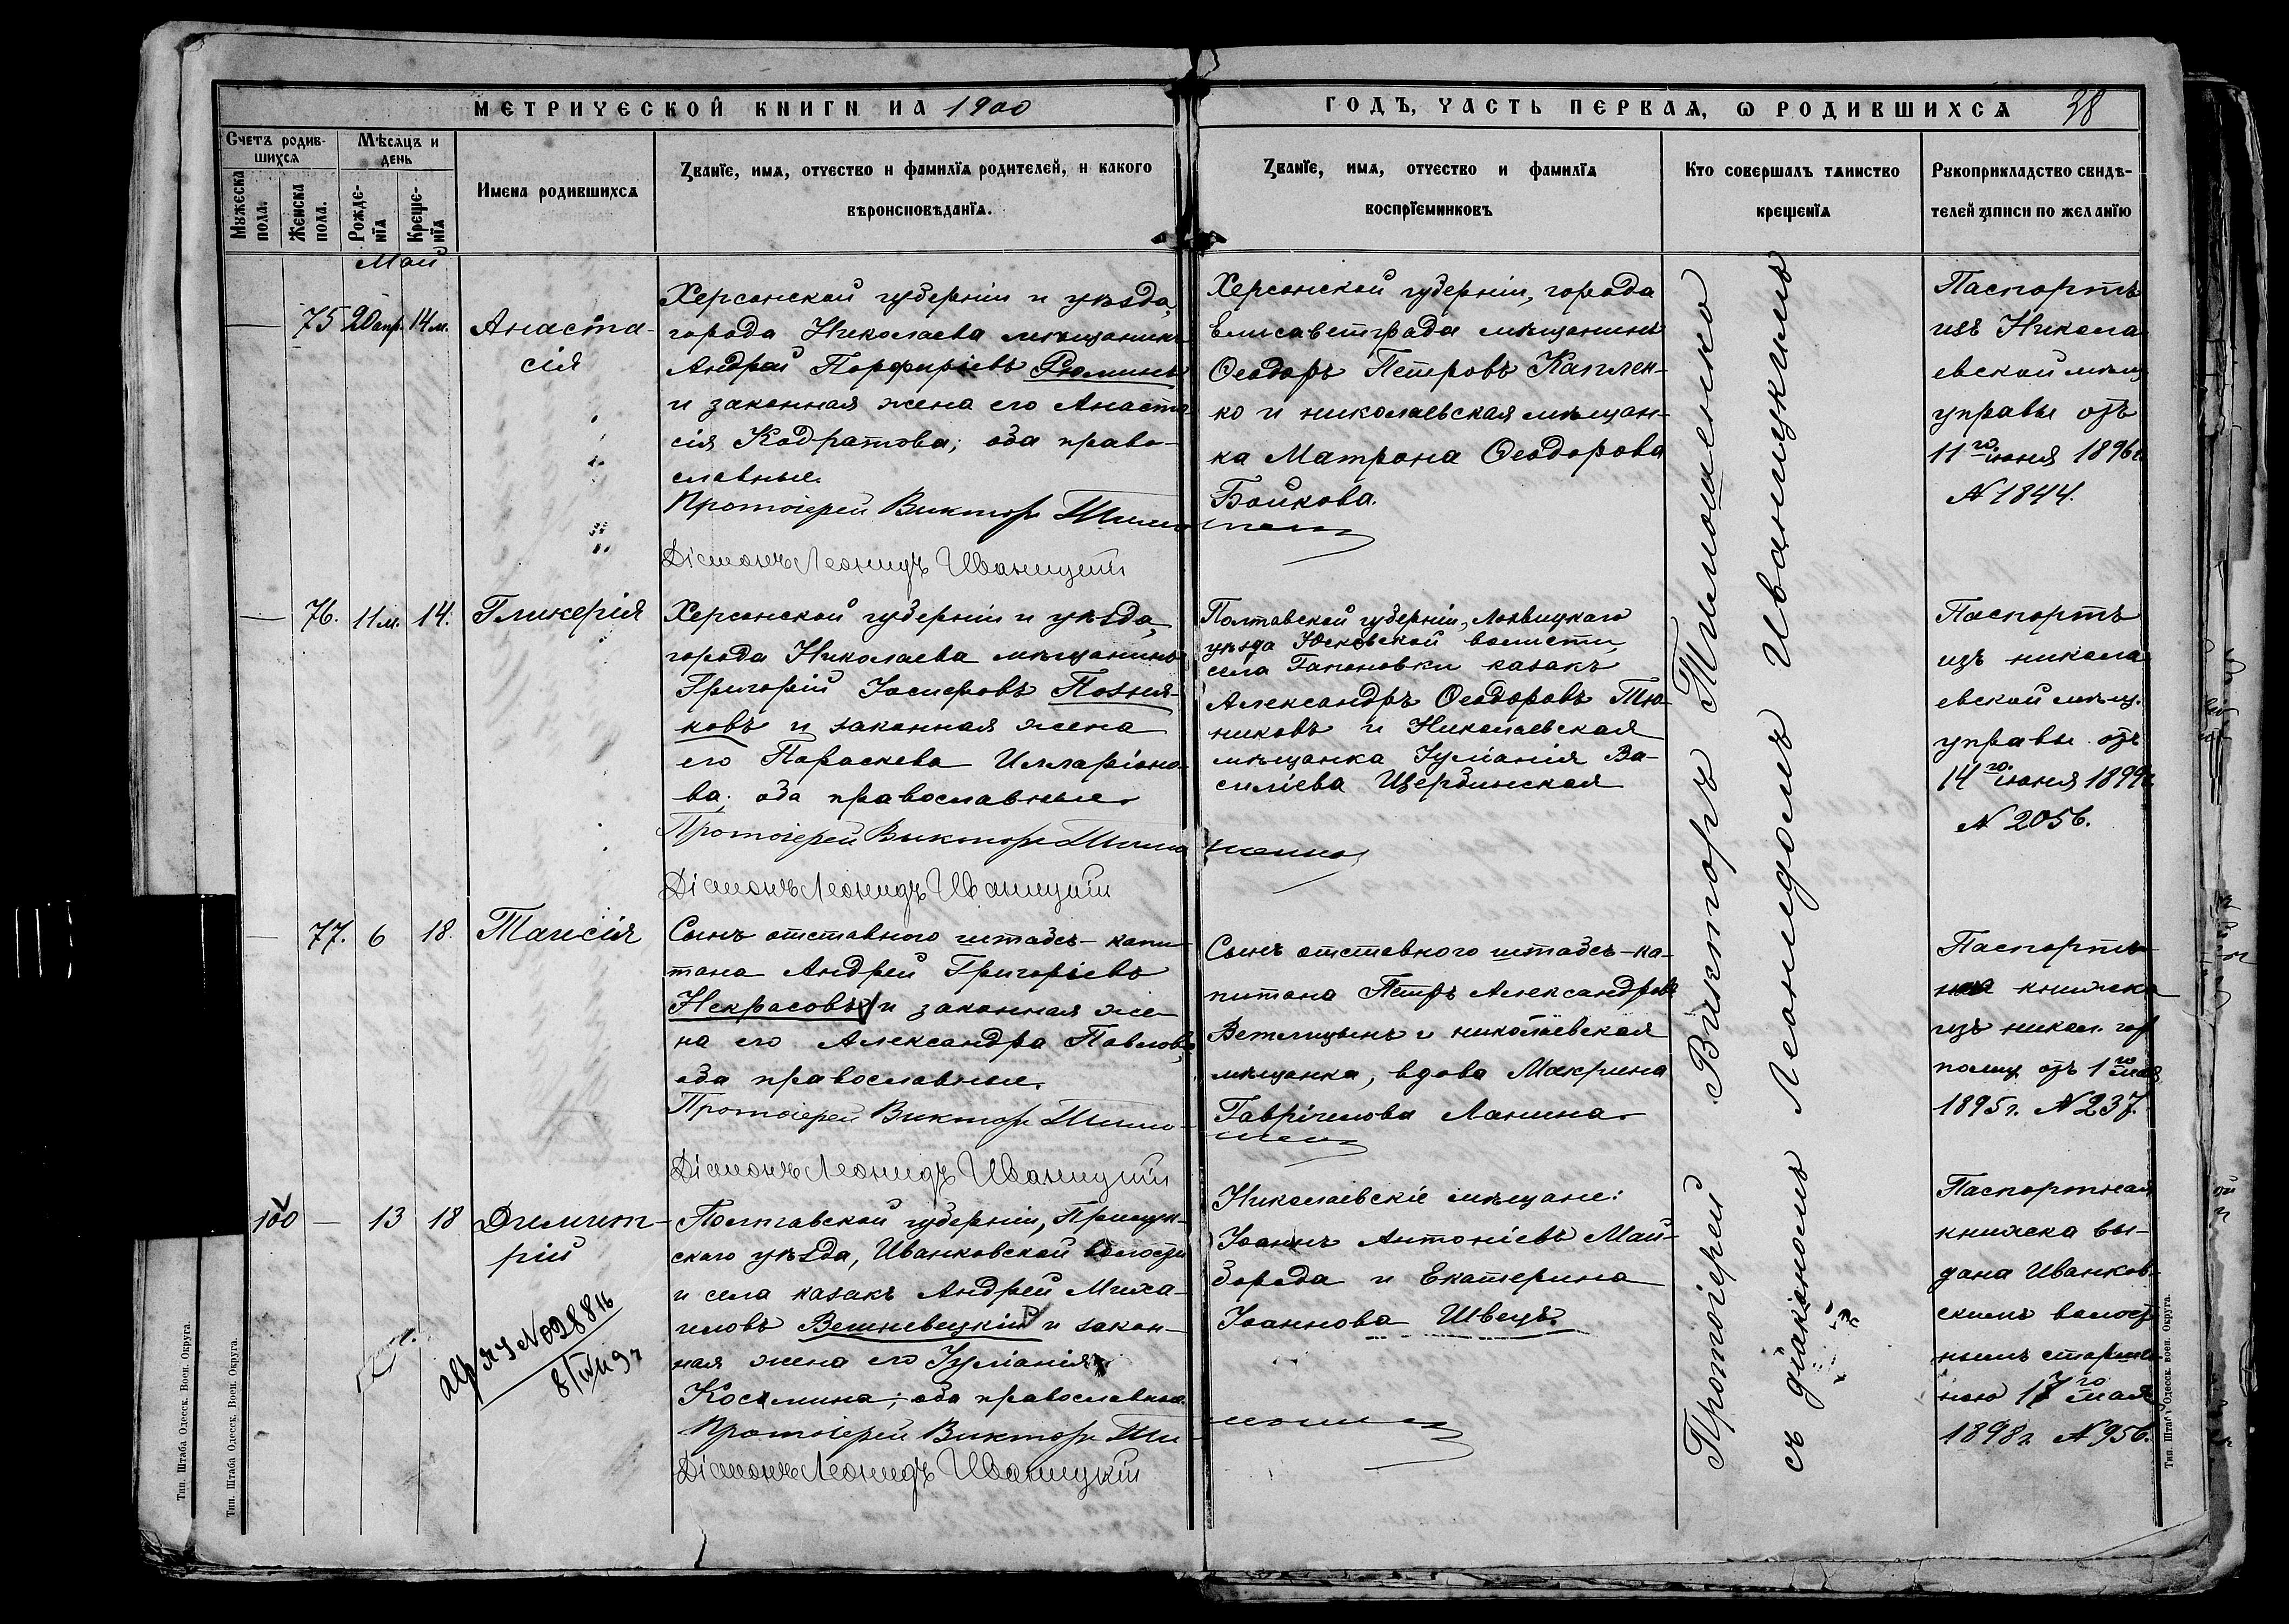 МЕТРИЧЕСКОЙ КНИГИ НА 1900
ГОДЪ, ЧАСТЬ ПЕРВАѦ, Ѡ РОДИВШИХСѦ
38
Счетъ родив-
шихсѧ
Мѣсѧцъ и
день
Мужеска
пола.
Женска
пола.
Рожде-
нїѧ
Креще-
нїѧ
Имена родившихсѧ
Ꙁванїе, имѧ, отчество и фамилїѧ родителей, и какого
вѣроисповѣданїѧ.
Ꙁванїе, имѧ, отчество и фамилїѧ
воспрїемниковъ
Кто совершалъ таинство
крещенїѧ
Рукоприкладство свидѣ-
телей ꙁаписи по желанїю
Май
— 75 20 апр. 14 м.
Анаста-
сія
Херсонской губерніи и уѣзда,
города Николаева мѣщанинъ
Андрей Порфиріевъ Рюминъ
и законная жена его Анаста-
сія Кодратова; оба право-
славные.
Протоіерей Викторъ Тимо
Діаконъ Леонидъ Иваницкій
Херсонской губерніи, города
Елисаветграда мѣщанинъ
Ѳеодоръ Петровъ Каплен-
ко и николаевская мѣщан-
ка Матрона Ѳеодорова
Бойкова.
Паспортъ
изъ Никола
евской мѣщ
управы отъ
11го іюня 1896 г.
№ 1844.
— 76. 11 м. 14.
Гликерія
Херсонской губерніи и уѣзда,
города Николаева мѣщанинъ
Григорій Іосифовъ Позня-
ковъ и законная жена
его Параскева Илларіоно-
ва; оба православные.
Протоіерей Викторъ Тимо
Діаконъ Леонидъ Иваницкій
Полтавской губерніи, Лохвицкаго
уѣзда Юсковской волости,
села Гапоновки казакъ
Александръ Ѳеодоровъ Тю-
никовъ и Николаевская
мѣщанка Іуліанія Ва-
силіева Щербинская
Паспортъ
изъ никола
евской мѣщ.
управы отъ
14го іюня 1899 г.
№ 2056.
— 77. 6 18.
Таисія
Сынъ отставного штабсъ-капи-
тана Андрей Григорьевъ
Некрасовъ и законная же-
на его Александра Павлова,
оба православные.
Протоіерей Викторъ Тимо-
Діаконъ Леонидъ Иваницкій
Сынъ отставного штабсъ-ка-
питана Петръ Александровъ
Ветлицынъ и николаевская
мѣщанка, вдова Макрина
Гавріилова Ланина.
Паспорт-
ная книжка
изъ никол. гор
полиц. отъ 1го мая
1895 г. № 237.
100 — 13 18
Димит-
рій
Полтавской губерніи, Прилук-
скаго уѣзда, Иванковской волости
и села казакъ Андрей Миха-
иловъ Вешневецкій и закон-
ная жена его Іуліанія
Космина; оба православные.
Протоіерей Викторъ Ти-
Діаконъ Леонидъ Иваницкій
Николаевскіе мѣщане:
Іоаннъ Антоніевъ Май-
борода и Екатерина
Іоаннова Швецъ.
Паспортная
книжка вы-
дана Иванков-
скимъ волост
нымъ старши-
ною 17го мая
1898 г. № 956.
Протоіерей Викторъ Тимошенко
съ діакономъ Леонидомъ Иваницкимъ
Тип. Штаба Одесск. Воен. Округа.
Тип. Штаба Одесск. Воен. Округа.
Тип. Штаба Одесск. воен. Округа.